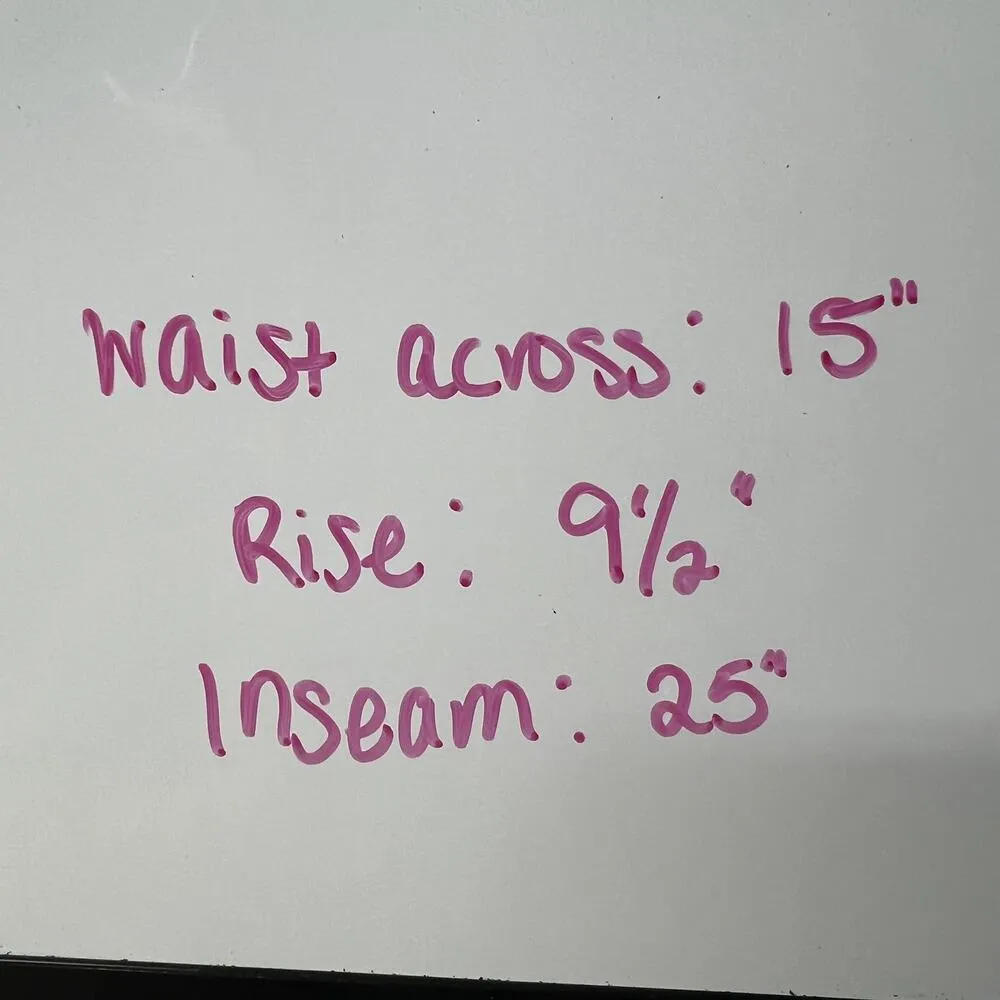 Waist across: 15"
Rise: 9 1/2"
Inseam: 25"